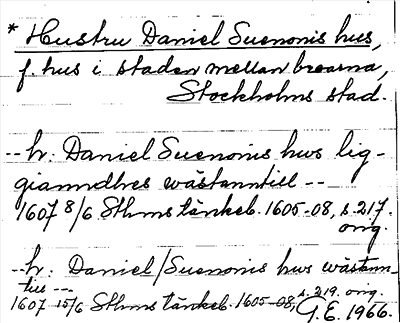 * Hustru Daniel Suenonis hus,
f. hus i staden mellan broarna,
Stockholms stad.
-- h: Daniel Suenonis hws lig-
gianndhes wästanntill --
1607 8/6 Sthms tänkeb. 1605-08, s. 217.
orig.
-- h: Daniel/Suenonis hws wästann-
till ---
1607 15/6 Sthms tänkeb. 1605-08, s. 219. orig.
G.E. 1966.